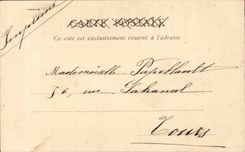 Imprimé
CARTE POSTALE
Ce côté est exclusivement réservé à l'adresse
Mademoiselle Papillault
56, rue Lakanal
Tours